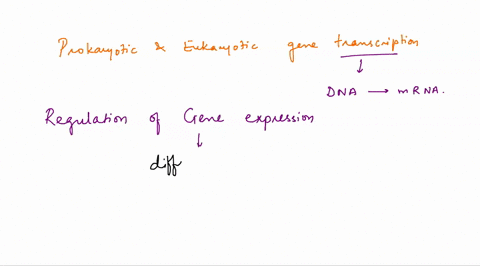 Prokaryotic & Eukaryotic gene transcription
↓
DNA → mRNA.
Regulation of Gene expression
↓
diff